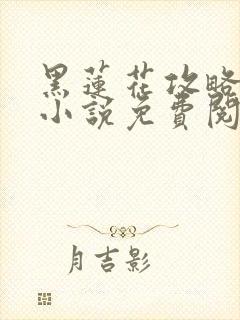 黑蓮花攻略
小說免費閱
月吉影